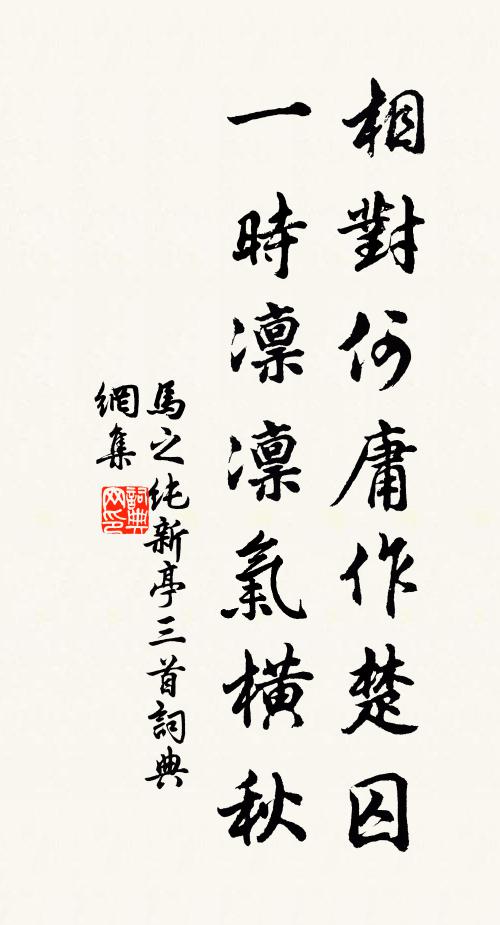 相對何庸作楚囚
一時凛凛氣橫秋
馬之純新亭三首詞典
網集
詞典
网印